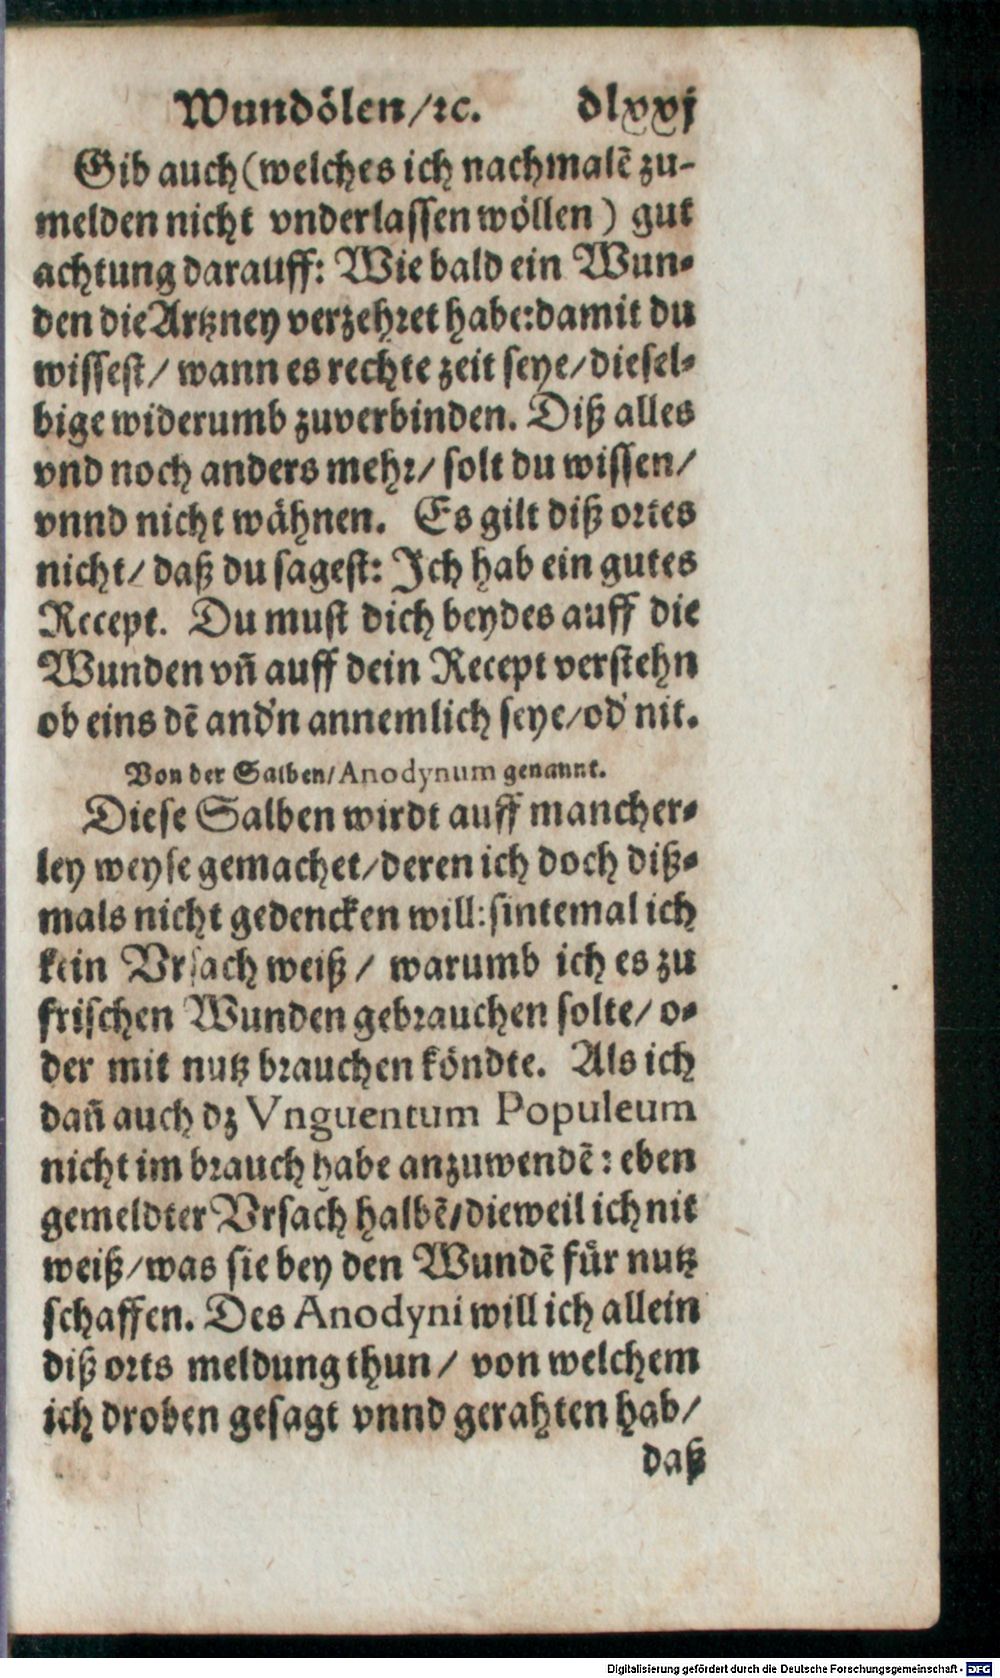 Wundölen/ꝛc. dlxxj
Gib auch (welches ich nachmalẽ zu-
melden nicht vnderlassen wöllen) gut
achtung darauff: Wie bald ein Wun-
den die Artzney verzehret habe: damit du
wissest/ wann es rechte zeit seye/ diesel-
bige widerumb zuverbinden. Diß alles
vnd noch anders mehr/ solt du wissen/
vnnd nicht wähnen. Es gilt diß ortes
nicht/ daß du sagest: Ich hab ein gutes
Recept. Du must dich beydes auff die
Wunden vñ auff dein Recept verstehn
ob eins dẽ and'n annemlich seye/ od' nit.
Von der Salben/ Anodynum genannt.
Diese Salben wirdt auff mancher-
ley weyse gemachet/ deren ich doch diß-
mals nicht gedencken will: sintemal ich
kein Vrsach weiß/ warumb ich es zu
frischen Wunden gebrauchen solte/ o-
der mit nutz brauchen köndte. Als ich
dañ auch dz Vnguentum Populeum
nicht im brauch habe anzuwendẽ: eben
gemeldter Vrsach halbẽ/ dieweil ich nit
weiß/ was sie bey den Wundẽ für nutz
schaffen. Des Anodyni will ich allein
diß orts meldung thun/ von welchem
ich droben gesagt vnnd gerahten hab/
daß
Digitalisierung gefördert durch die Deutsche Forschungsgemeinschaft - DFG